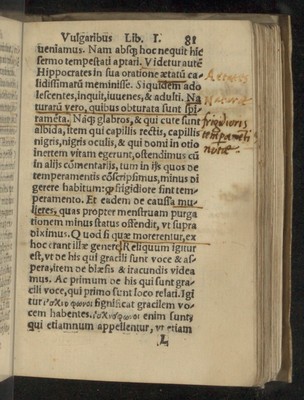 Vulgaribus Lib. I. 81
ueniamus. Nam absq; hoc nequit hic
sermo tempestati aptari. Videtur autẽ
Hippocrates in sua oratione ætatũ ca-
lidissimarũ meminisse. Siquidem ado
lescentes, inquit, iuuenes, & adulti. Na
turarũ vero, quibus obturata sunt spi
ramẽta. Nãq; glabros, & qui cute sunt
albida, item qui capillis rectis, capillis
nigris, nigris oculis, & qui domi in otio
inertem vitam egerunt, ostendimus cũ
in alijs cõmentarijs, tum in ijs quos de
temperamentis cõscripsimus, minus di
gerere habitum: ꝙ frigidiore sint tem-
peramento. Et eadem de caussa mu-
lieres, quas propter menstruam purga
tionem minus status offendit, vt supra
diximus. Quod si quæ morerentur, ex
hoc erant illæ genere. Reliquum igitur
est, vt de his qui gracili sunt voce & as-
pera, item de blæsis & iracundis videa
mus. Ac primum de his qui sunt gra-
cili voce, qui primo sunt loco relati. Igi
tur ἰσχνοφωνοι significat gracilem vo-
cem habentes. ἰσχνοφωνοι enim sunt,
qui etiamnum appellentur, vt etiam
L
Naturæ
frigidioris